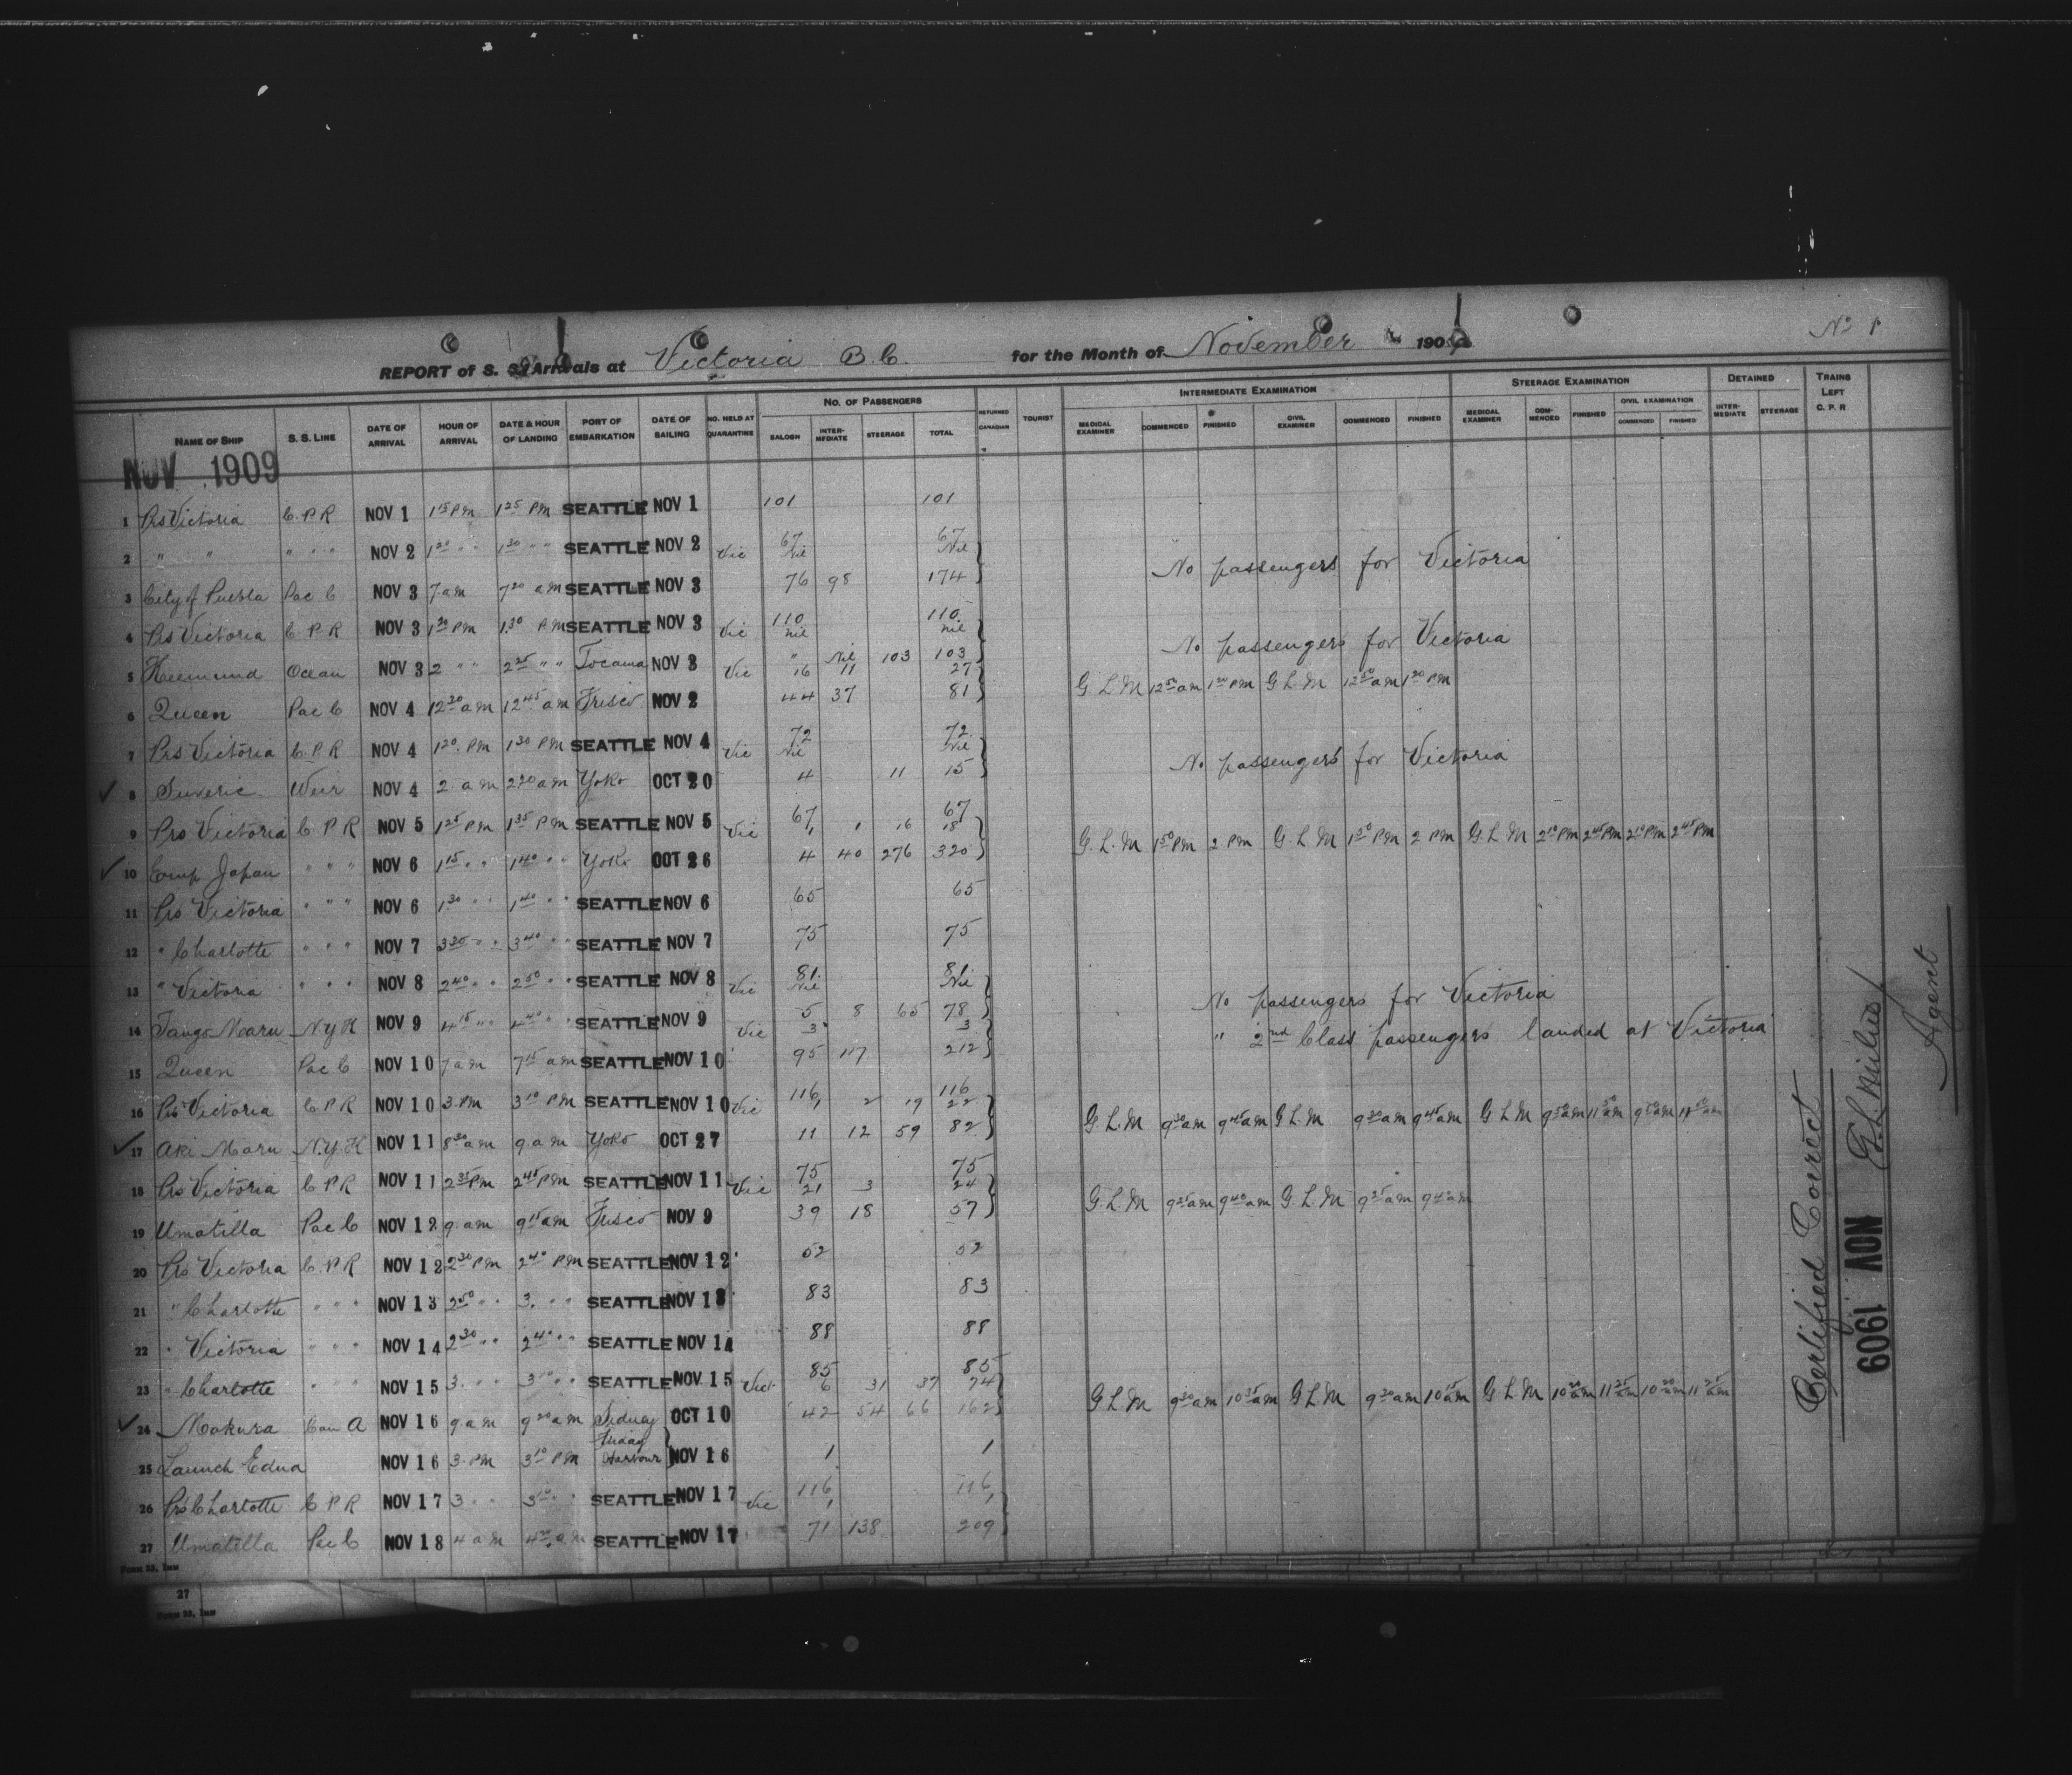 No 1
REPORT of S. S. Arrivals at Victoria B.C. for the Month of November 190
NAME OF SHIP S. S. LINE DATE OF ARRIVAL HOUR OF ARRIVAL DATE & HOUR OF LANDING PORT OF EMBARKATION DATE OF SAILING NO. HELD AT QUARANTINE NO. OF PASSENGERS SALOON INTERMEDIATE STEERAGE TOTAL RETURNED CANADIAN TOURIST INTERMEDIATE EXAMINATION MEDICAL EXAMINER COMMENCED FINISHED CIVIL EXAMINER COMMENCED FINISHED STEERAGE EXAMINATION MEDICAL EXAMINER COMMENCED FINISHED CIVIL EXAMINATION COMMENCED FINISHED DETAINED INTERMEDIATE STEERAGE TRAINS LEFT C. P. R
NOV 1909
1 Prs Victoria C.P.R NOV 1 1 15 PM 1 25 PM SEATTLE NOV 1 101 101
2 " " " " " NOV 2 1 20 " " 1 30 " " SEATTLE NOV 2 67 67
Vic Nil Nil
3 City of Puebla Pac C NOV 3 7 am 7 20 am SEATTLE NOV 3 76 98 174 No passengers for Victoria
4 Prs Victoria C P R NOV 3 1 20 PM 1 30 PM SEATTLE NOV 3 110 110
Vic nil nil
5 Ocean NOV 3 2 " " 2 25 " " NOV 3 " Nil 103 103 No passengers for Victoria
Vic 16 11 27
6 Queen Pac C NOV 4 12 30 am 12 45 am Frisco NOV 2 44 37 81 G L M 12 50 am 1 20 PM G L M 12 50 am 1 20 PM
7 Prs Victoria C.P.R NOV 4 1 20 PM 1 30 PM SEATTLE NOV 4 72 72
Vic Nil Nil
8 Suveric Weir NOV 4 2 am 2 20 am Yoko OCT 20 4 11 15 No passengers for Victoria
9 Prs Victoria C P R NOV 5 1 25 PM 1 35 PM SEATTLE NOV 5 67 67
Vic 1 1 16 18
10 Emp Japan " " " NOV 6 1 15 " " 1 40 " " Yoko OCT 26 4 40 276 320 G. L. M 1 50 PM 2 PM G. L M 1 50 PM 2 PM G L M 2 10 PM 2 45 PM 2 10 PM 2 45 PM
11 Prs Victoria " " " NOV 6 1 30 " " 1 40 " " SEATTLE NOV 6 65 65
12 " Charlotte " " " NOV 7 3 30 " " 3 40 " " SEATTLE NOV 7 75 75
13 " Victoria " " " NOV 8 2 40 " " 2 50 " " SEATTLE NOV 8 81 81
Vic Nil Nil
14 Tango Maru N.Y.K NOV 9 4 15 " " 4 40 " " SEATTLE NOV 9 5 8 65 78 No passengers for Victoria
Vic 3 3
15 Queen Pac C NOV 10 7 am 7 15 am SEATTLE NOV 10 95 117 212 " 2nd Class passengers landed at Victoria
16 Prs Victoria C P R NOV 10 3 PM 3 10 PM SEATTLE NOV 10 116 116
Vic 1 2 19 22
17 Aki Maru N.Y.K NOV 11 8 30 am 9 am Yoko OCT 27 11 12 59 82 G.L.M 9 30 am 9 45 am G L M 9 30 am 9 45 am G L M
18 Prs Victoria C P R NOV 11 2 35 PM 2 45 PM SEATTLE NOV 11 75 75
Vic 21 3 24
19 Umatilla Pac C NOV 12 9 am 9 15 am Frisco NOV 9 39 18 57 G. L. M 9 25 am 9 40 am G. L. M 9 25 am 9 40 am
20 Prs Victoria C.P.R NOV 12 2 30 PM 2 40 PM SEATTLE NOV 12 52 52
21 " Charlotte " " " NOV 13 2 50 " " 3. " " SEATTLE NOV 13 83 83
22 " Victoria " " " NOV 14 2 30 " " 2 40 " " SEATTLE NOV 14 88 88
23 " Charlotte " " " NOV 15 3. " " 3 10 " " SEATTLE NOV 15 85 85
Vict 6 31 37 74
24 Makura Can A NOV 16 9 am 9 20 am Sidney OCT 10 42 54 66 162 G L M 9 30 am G L M 9 30 am G L M
25 Launch Edna NOV 16 3 PM 3 10 PM Friday Harbour NOV 16 1 1
26 Prs Charlotte C P R NOV 17 3 " " 3 10 " " SEATTLE NOV 17 116 116
Vic 1 1
27 Umatilla Pac C NOV 18 4 am 4 20 am SEATTLE NOV 17 71 138 209
FORM 33, IMM
27
FORM 33, IMM
Certified Correct
NOV 1909
G. L. Milne
Agent